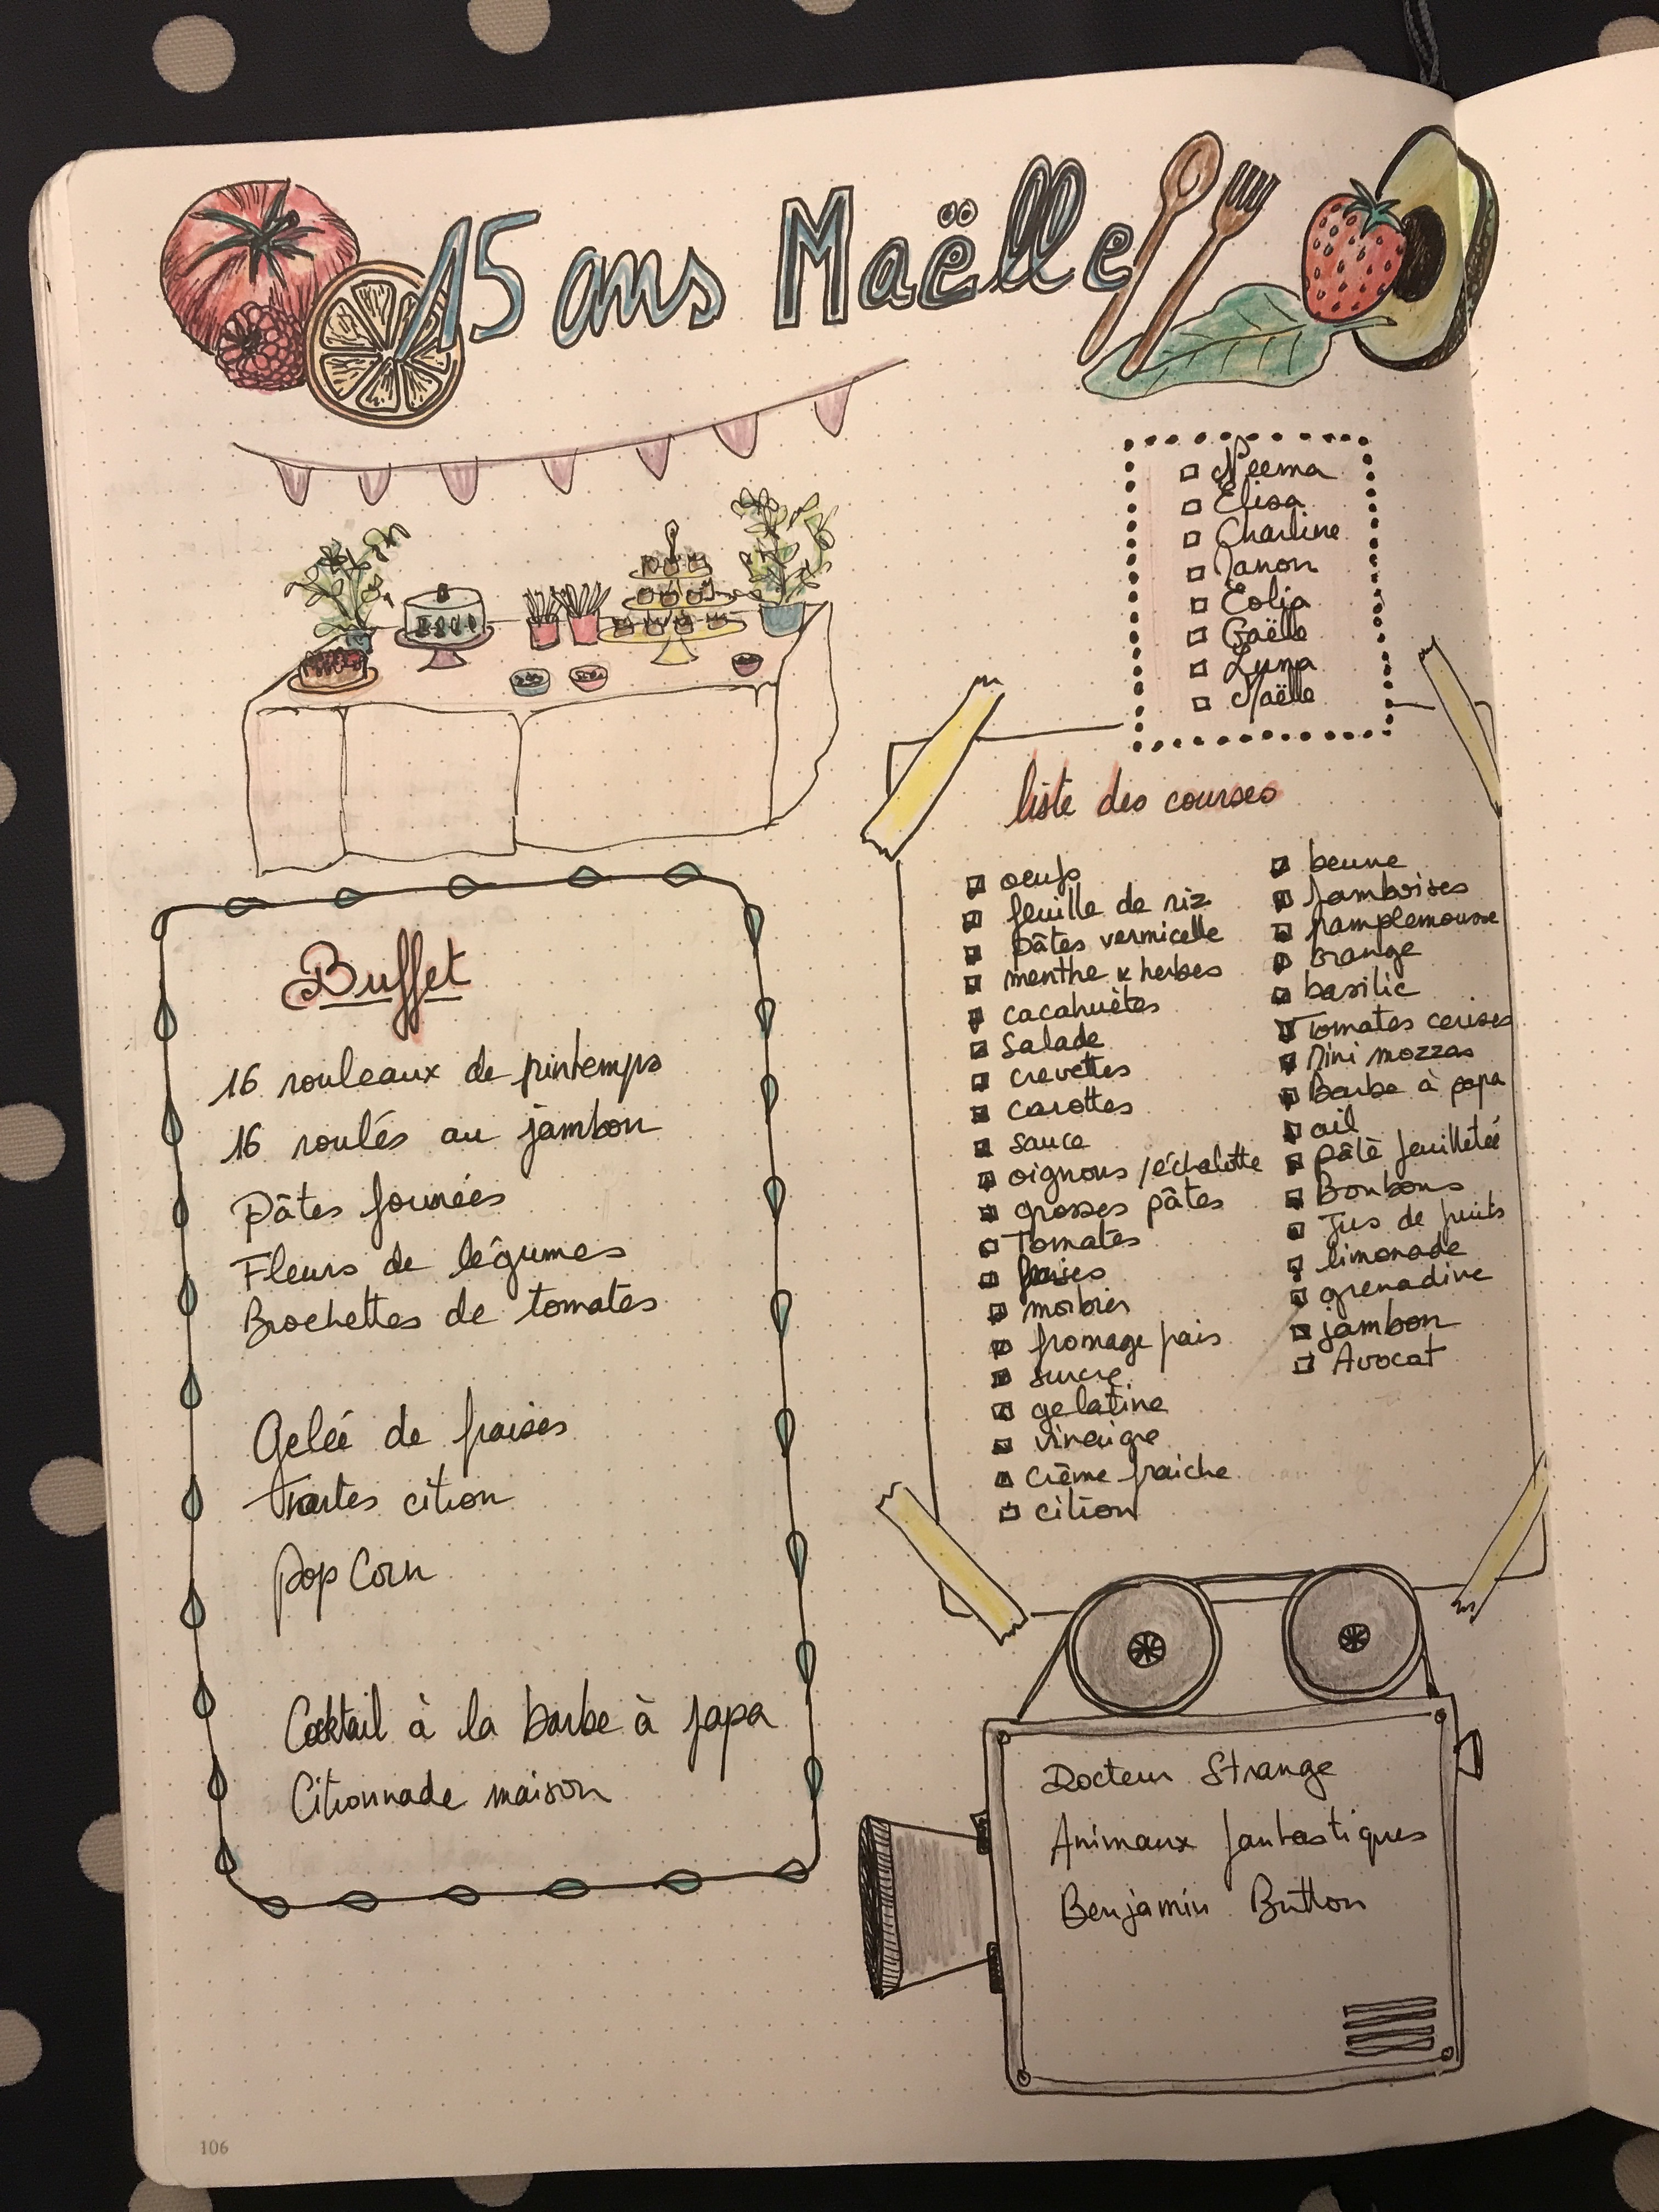 15 ans Maëlle
Neema
Elisa
Charline
Manon
Eolia
Gaëlle
Luna
Maëlle
liste des courses
oeufs
feuille de riz
pâtes vermicelle
menthe & herbes
cacahuètes
Salade
crevettes
carottes
sauce
oignons / échalotte
grosses pâtes
Tomates
fraises
morbier
fromage frais
sucre
gelatine
vinaigre
crème fraiche
citron
beurre
framboises
pamplemousse
orange
basilic
Tomates cerises
Mini mozzas
Barbe à papa
ail
pâtè feuilletée
Bonbons
Jus de fruits
limonade
grenadine
jambon
Avocat
Buffet
16 rouleaux de printemps
16 roulés au jambon
Pâtes fourrées
Fleurs de légumes
Brochettes de tomates
Gelée de fraises
Tartes citron
Pop Corn
Cocktail à la barbe à papa
Citronnade maison
Docteur Strange
Animaux fantastiques
Benjamin Button
106